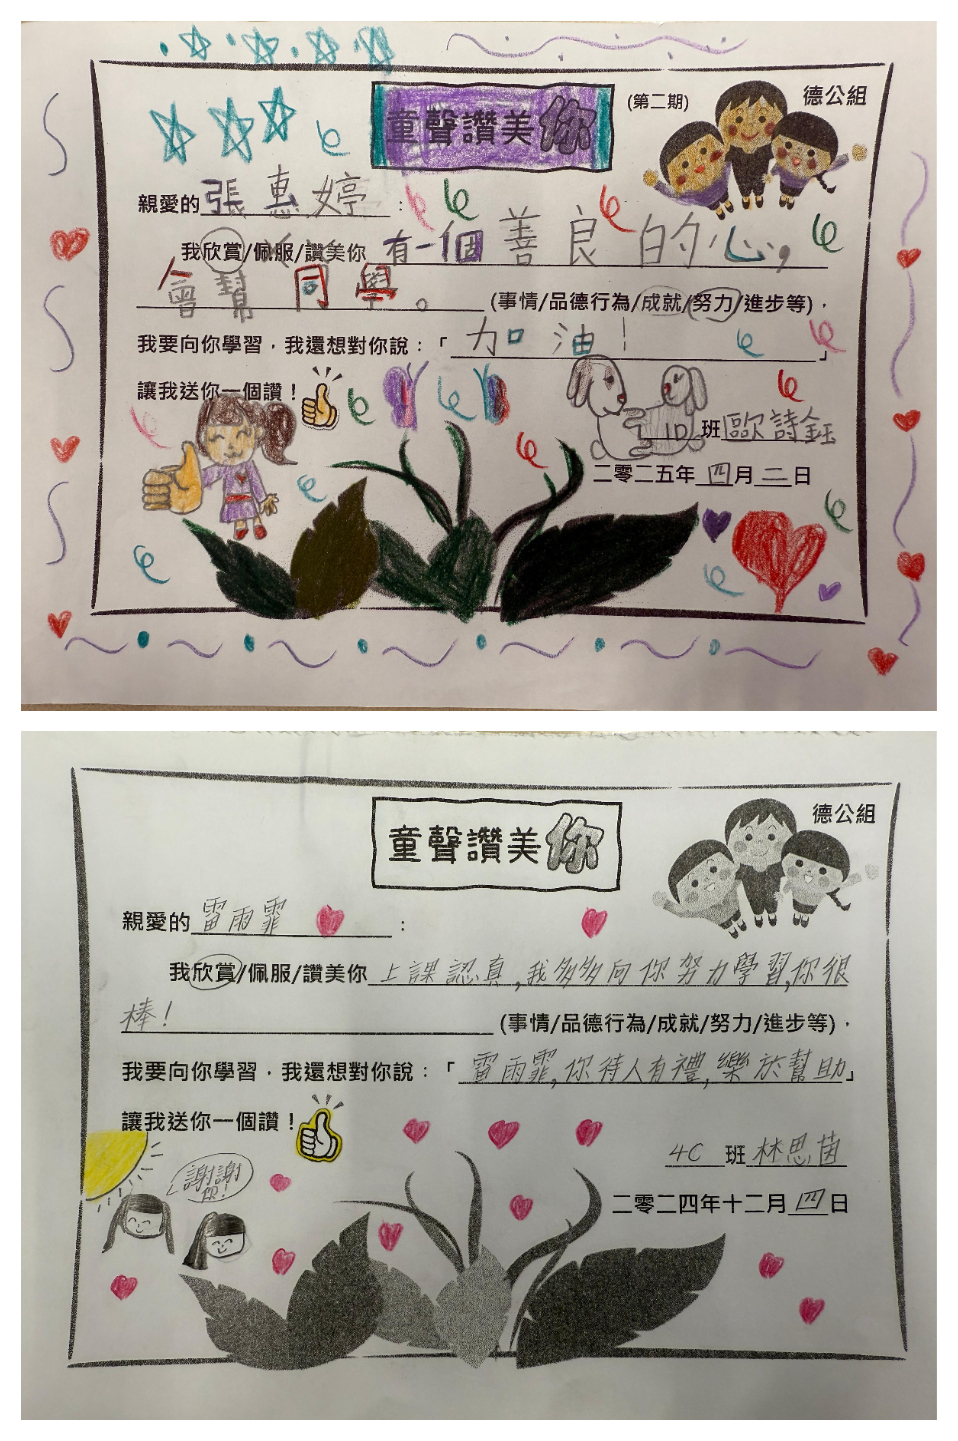 童聲讚美你
(第二期)
德公組
親愛的張惠婷：
我欣賞/佩服/讚美你有一個善良的心，
會幫同學。(事情/品德行為/成就/努力/進步等)，
我要向你學習，我還想對你說：「加油！」
讓我送你一個讚！
1D班歐詩鈺
二零二五年四月二日
童聲讚美你
德公組
親愛的雷雨霏：
我欣賞/佩服/讚美你上課認真,我多多向你努力學習,你很
棒！(事情/品德行為/成就/努力/進步等)，
我要向你學習，我還想對你說：「雷雨霏,你待人有禮,樂於幫助」
讓我送你一個讚！
謝謝
你!
4C班林思茵
二零二四年十二月四日